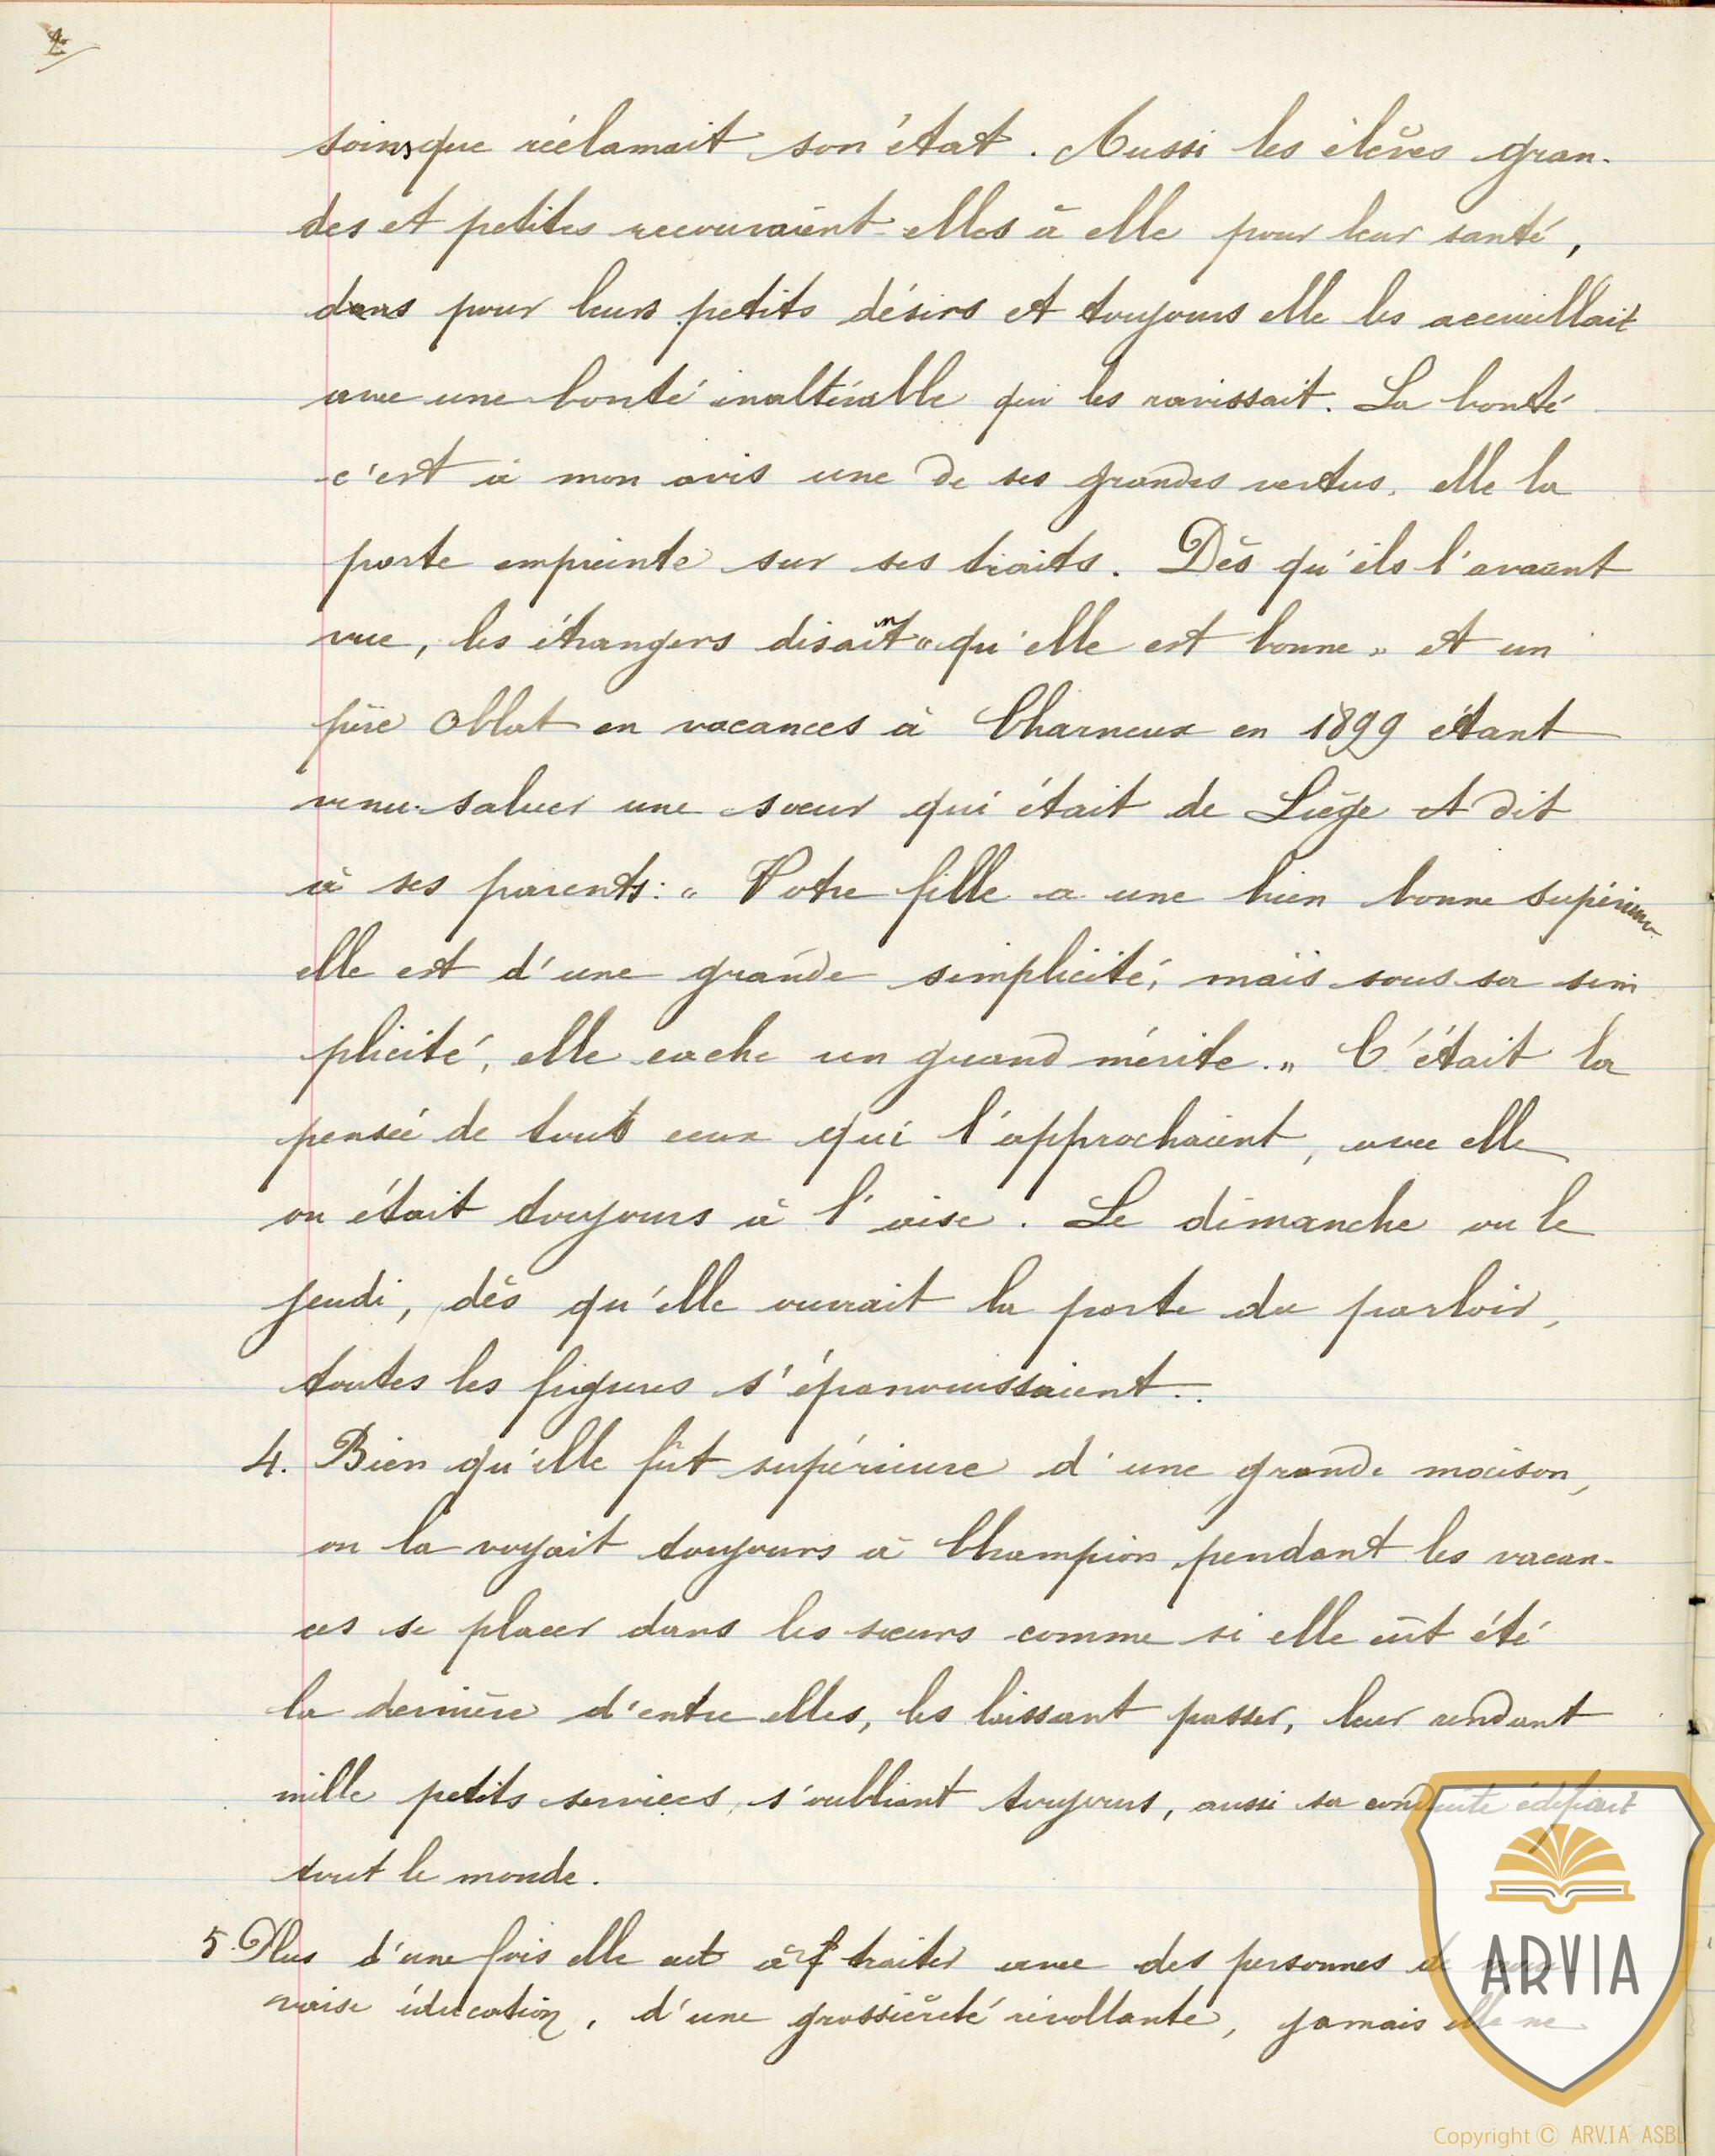 2
soins que réclamait son état. Aussi les élèves gran-
des et petites recouraient-elles à elle pour leur santé,
dans pour leurs petits désirs et toujours elle les accueillait
avec une bonté inaltérable qui les ravissait. La bonté
c'est à mon avis une de ses grandes vertus, elle la
porte empreinte sur ses traits. Dès qu'ils l'avaient
vue, les étrangers disaient « qu'elle est bonne » et un
père Oblat en vacances à Charneux en 1899 étant
venu saluer une sœur qui était de Liège et dit
à ses parents: « Votre fille a une bien bonne supérieure
elle est d'une grande simplicité, mais sous sa sim
plicité, elle cache un grand mérite. » C'était la
pensée de tous ceux qui l'approchaient, avec elle
on était toujours à l'aise. Le dimanche ou le
jeudi, dès qu'elle ouvrait la porte du parloir,
toutes les figures s'épanouissaient.
4. Bien qu'elle fût supérieure d'une grande maison,
on la voyait toujours à Champion pendant les vacan-
ces se placer dans les sœurs comme si elle eût été
la dernière d'entre elles, les laissant passer, leur rendant
mille petits services, s'oubliant toujours, aussi sa conduite édifiait
tout le monde.
5. Plus d'une fois elle eut à traiter avec des personnes de mau
vaise éducation, d'une grossièreté révoltante, jamais elle ne
ARVIA
Copyright © ARVIA ASBL